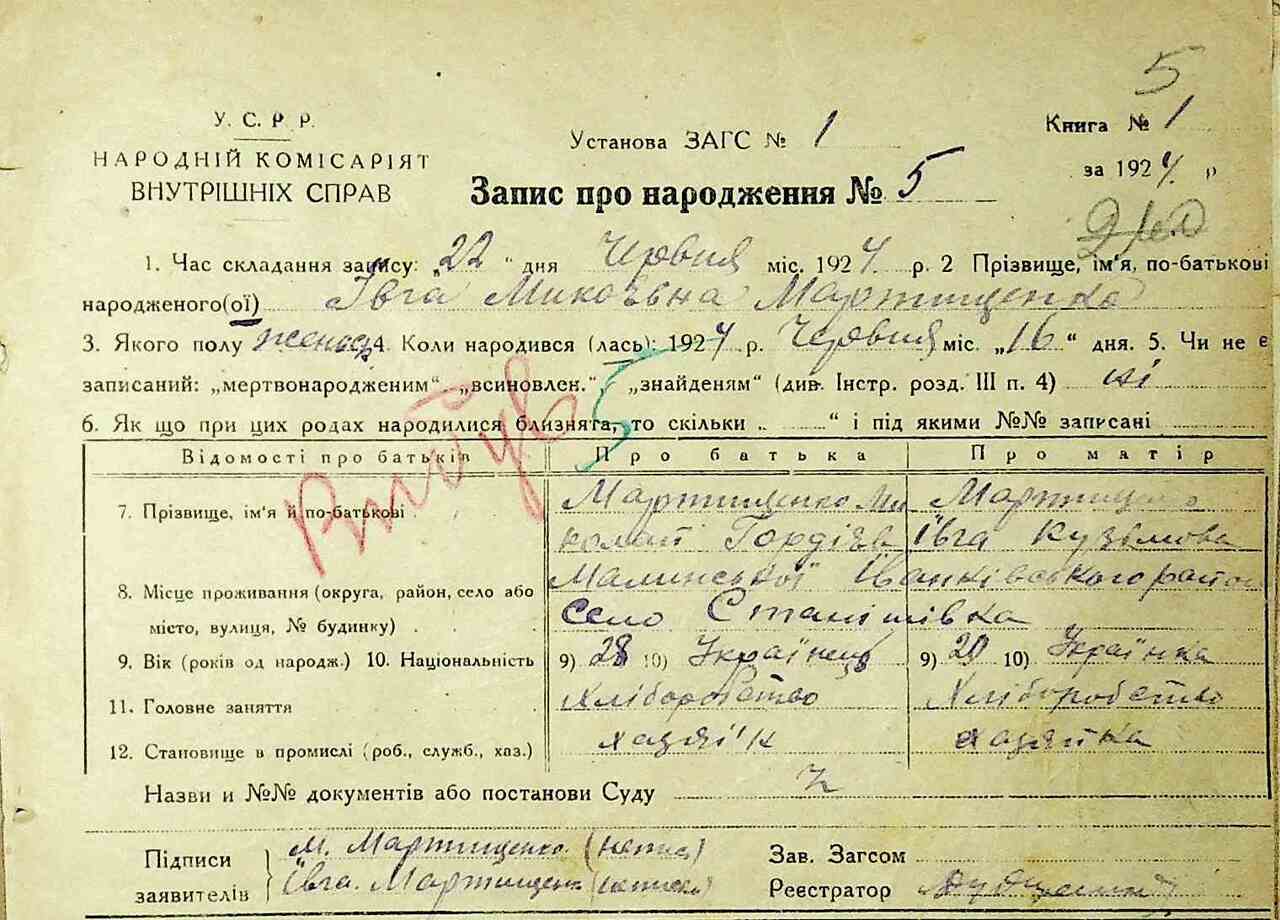 5
У. С. Р. Р.
НАРОДНІЙ КОМІСАРІЯТ
ВНУТРІШНІХ СПРАВ
Установа ЗАГС № 1
Книга № 1
за 1924 р
Запис про народження № 5
1. Час складання запису: „22“ дня Червня міс. 1924 р. 2 Прізвище, ім'я, по-батькові
народженого(ої) Івга Миколівна Мартищенко
3. Якого полу женск. 4. Коли народився (лась): 1924 р. Червня міс. „16“ дня. 5. Чи не є
записаний: „мертвонародженим“ „всиновлен.“, „знайденям“ (див. Інстр. розд. III п. 4) ні
6. Як що при цих родах народилися близнята, то скільки .. “ і під якими №№ записані
5
Відомості про батьків Про батька Про матір
7. Прізвище, ім'я й по-батькові Мартищенко Ми Мартищенко
колай Гордієв Івга Кузьмова
8. Місце проживання (округа, район, село або Малинської Іванківського району
місто, вулиця, № будинку) село Станішівка
9. Вік (років од народж.) 10. Національність 9) 28 10) Українець 9) 20 10) Українка
11. Головне заняття Хліборобство Хліборобство
12. Становище в промислі (роб., служб., хаз.) хазяїн хазяйка
Назви и №№ документів або постанови Суду
Підписи М. Мартищенко (непис) Зав. Загсом
заявителів Івга. Мартищенк Реєстратор